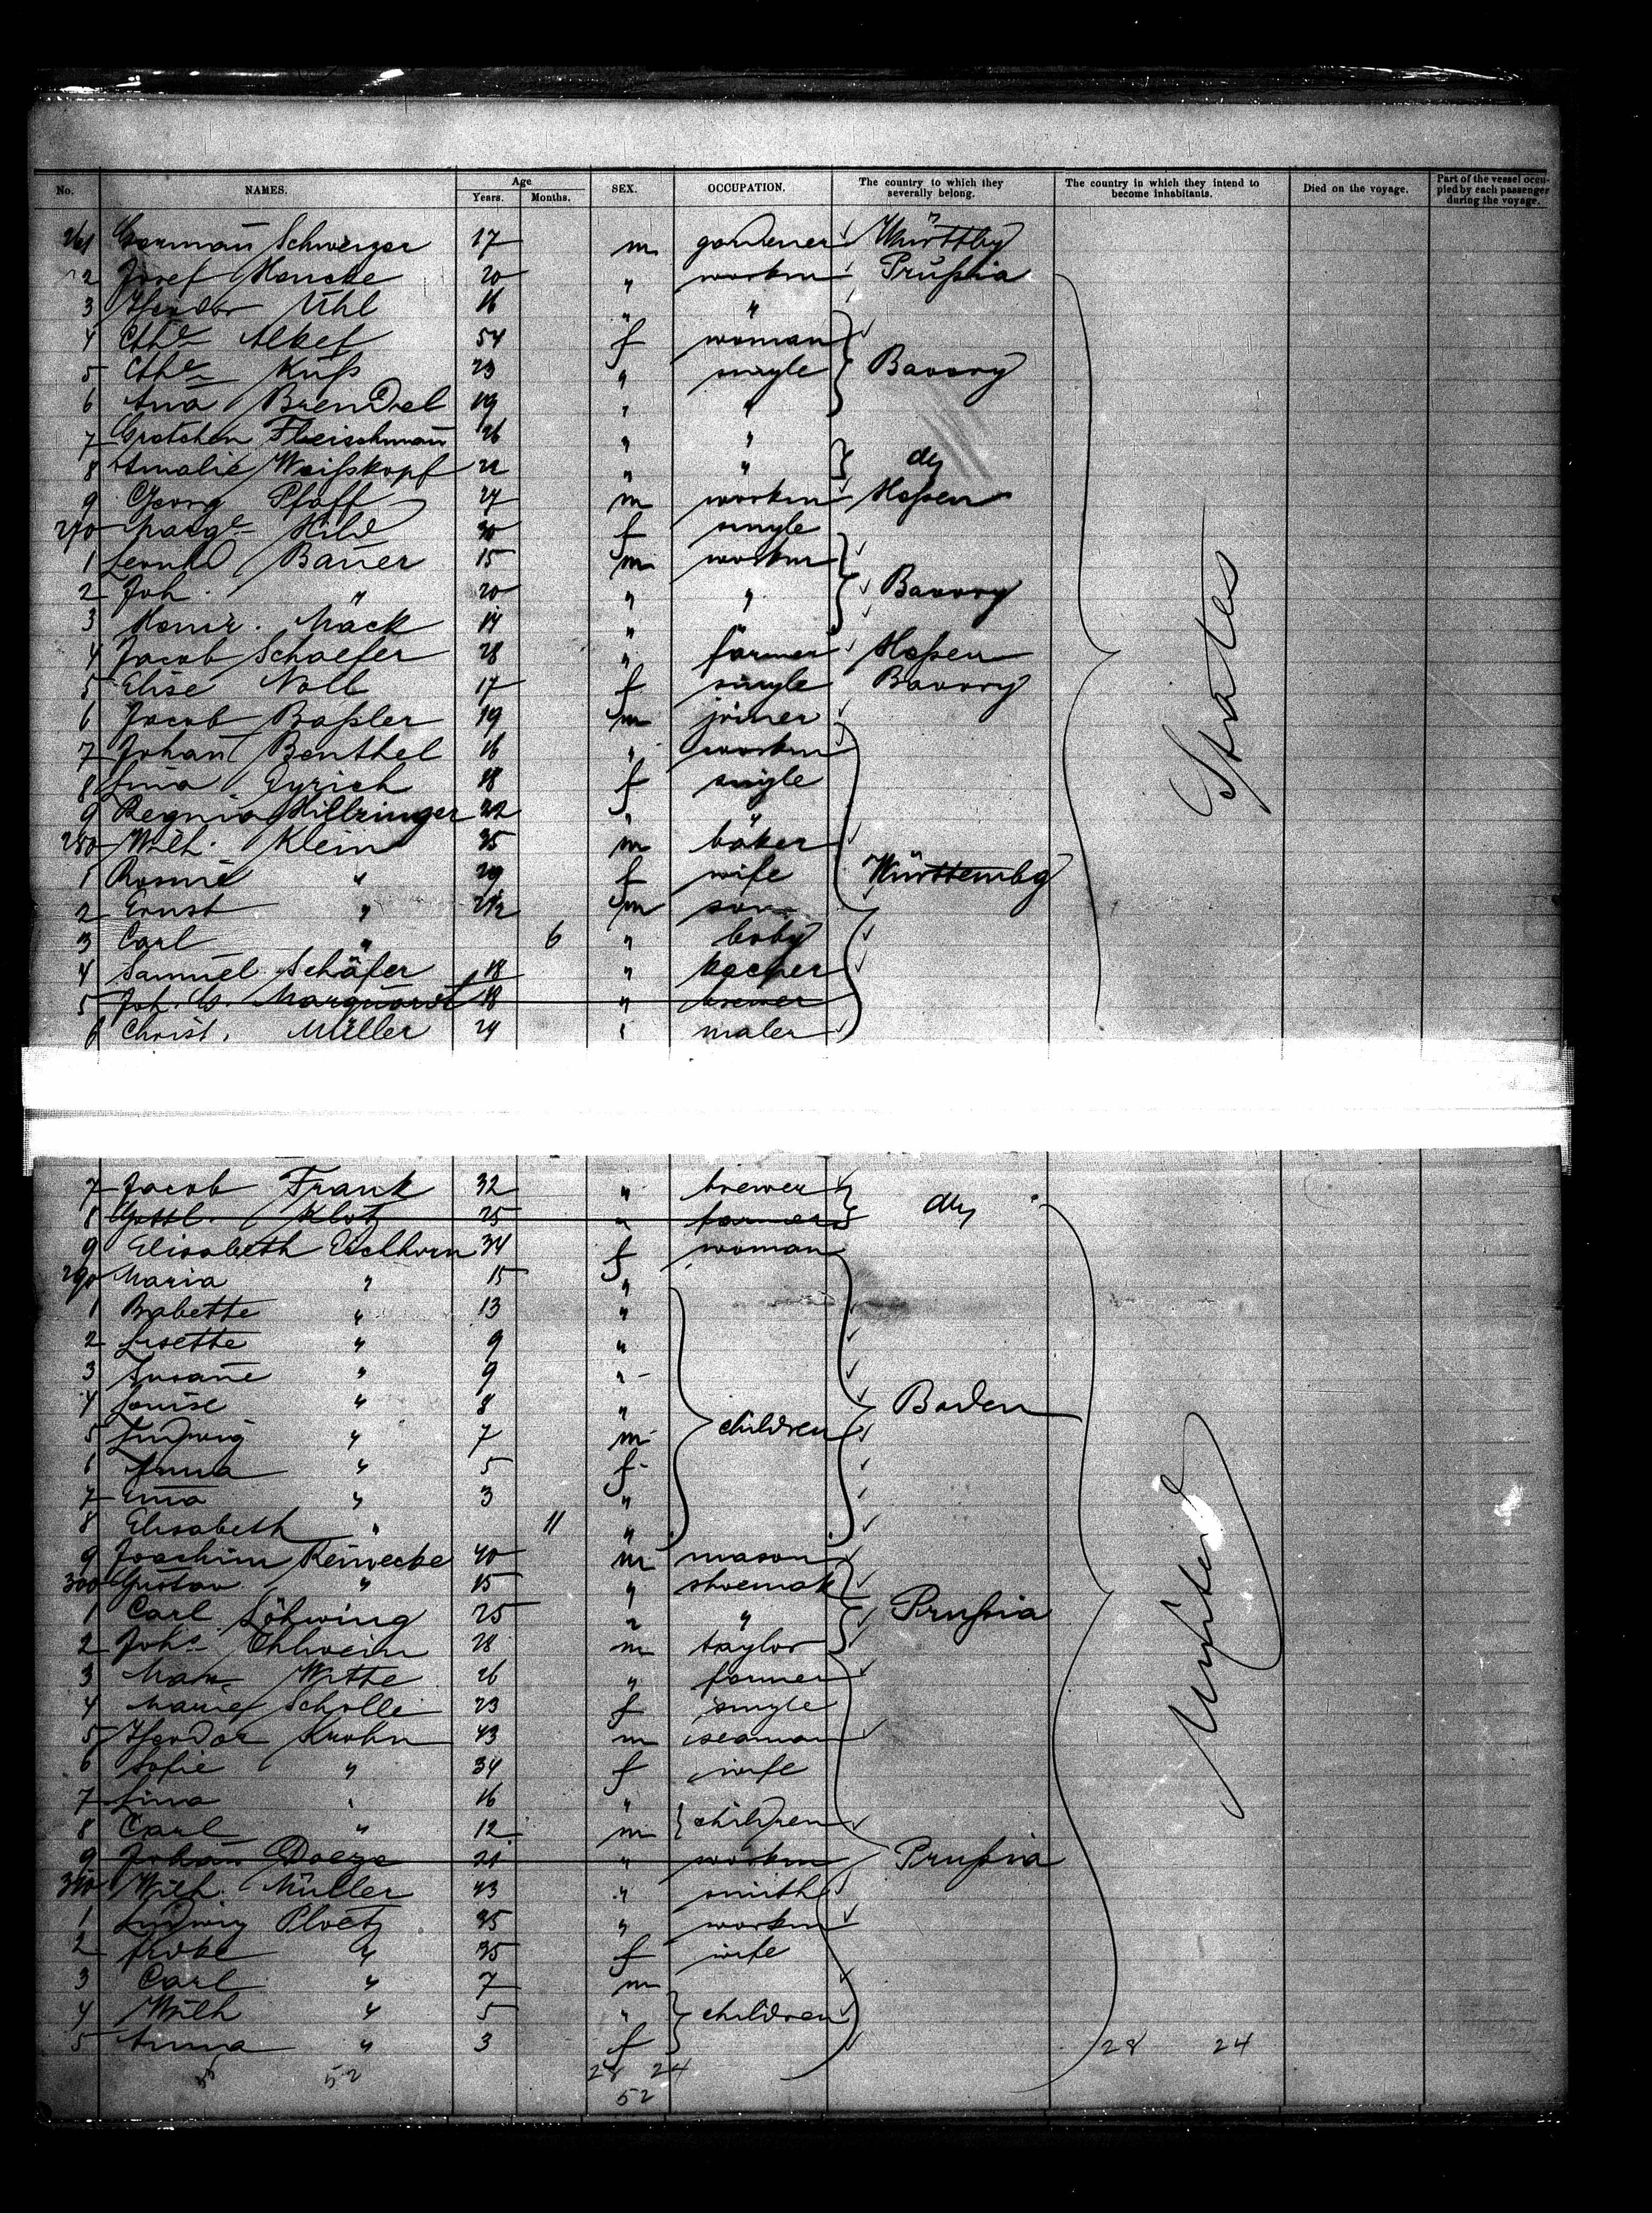 No. NAMES. Age Years. Months. SEX. OCCUPATION. The country to which they severally belong. The country in which they intend to become inhabitants. Died on the voyage. Part of the vessel occupied by each passenger during the voyage.
261 Herman Schweizer 17 m gardener Württbg
2 Josef Hencke 20 " workm Prußia
3 Theodor Uhl 16 " "
4 Cthe 54 f woman
5 Cthe Kuß 23 " single Bavory
6 Ana Brendel 19 " "
7 Gretchen Fleischman 26 " "
8 Amalie Weißkopf 22 " " do
9 Georg Pfaff 27 m workm Heßen
270 Marge Hild 30 f single
1 Leonhd Bauer 15 m workm
2 Joh. " 20 " " Bavory
3 Konr. Mack 14 " "
4 Jacob Schaefer 28 " farmer Heßen
5 Elise Noll 17 f single Bavory
6 Jacob Baßler 19 m joiner
7 Johan Benthel 16 " workm
8 Lina Eyrich 18 f single
9 Regnia Hillringer 22 " "
280 Wilh. Klein 35 m baker
1 Rosine " 29 f wife Württembg
2 Ernst " 2 1/2 m son
3 Carl " 6 " baby
4 Samuel Schäfer 18 "
5 Joh. G. Marquardt 18 " brewer
6 Christ. Müller 24 " maler
States
7 Jacob Frank 32 " brewer do
8 Gottl. Klotz 25 " farmer
9 Elisabeth Eichhorn 34 f woman
290 Maria " 15 "
1 Babette " 13 "
2 Lisette " 9 "
3 Susane " 9 "
4 Louise " 8 " Baden
5 Ludwig " 7 m children
6 Anna " 5 f
7 Ema " 3 "
8 Elisabeth " 11 "
9 Joachim Reinecke 40 m mason
300 Gustav " 15 " shoemak
1 Carl Löhwing 25 " " Prußia
2 Johs 28 m taylor
3 Witte 26 " farmer
4 Marie Scholle 23 f single
5 Theodor Krohn 43 m seaman
6 Sofie " 34 f wife
7 Lina " 16 "
8 Carl " 12 m children
9 Johan 21 " workm Prußia
310 Wilh. Müller 43 " smith
1 Ludwig Ploetz 35 " workm
2 " 35 f wife
3 Carl " 7 m
4 Wilh " 5 " children
5 Anna " 3 f
United
28 24
52 28 24
52